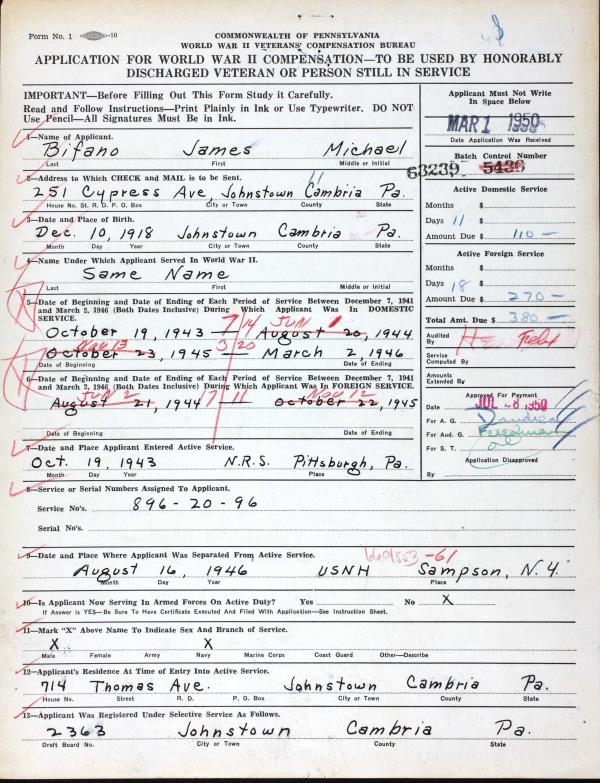 Form No. 1 -10
COMMONWEALTH OF PENNSYLVANIA
WORLD WAR II VETERANS' COMPENSATION BUREAU
APPLICATION FOR WORLD WAR II COMPENSATION—TO BE USED BY HONORABLY
DISCHARGED VETERAN OR PERSON STILL IN SERVICE
IMPORTANT—Before Filling Out This Form Study it Carefully.
Read and Follow Instructions—Print Plainly in Ink or Use Typewriter. DO NOT
Use Pencil—All Signatures Must Be in Ink.
Applicant Must Not Write
In Space Below
MAR 1 1950
Date Application Was Received
Batch Control Number
63239 5436
1—Name of Applicant.
Bifano James Michael
Last First Middle or Initial
2—Address to Which CHECK and MAIL is to be Sent.
251 Cypress Ave. Johnstown Cambria Pa.
House No. St. R. D. P. O. Box City or Town County State
3—Date and Place of Birth.
Dec. 10, 1918 Johnstown Cambria Pa.
Month Day Year City or Town County State
4—Name Under Which Applicant Served In World War II.
Same Name
Last First Middle or Initial
Active Domestic Service
Months $
Days 11 $
Amount Due $ 110 —
Active Foreign Service
Months $
Days 18 $
Amount Due $ 270 —
Total Amt. Due $ 380 —
Audited
By
Service
Computed By
Amounts
Extended By
Approved For Payment
Date JUL 28 1950
For A. G.
For Aud. G.
For S. T.
Application Disapproved
By
5—Date of Beginning and Date of Ending of Each Period of Service Between December 7, 1941
and March 2, 1946 (Both Dates Inclusive) During Which Applicant Was In DOMESTIC
SERVICE.
7/14 JUN 1
October 19, 1943 — August 20, 1944
Nov 13 3/20
October 23, 1945 — March 2, 1946
Date of Beginning Date of Ending
6—Date of Beginning and Date of Ending of Each Period of Service Between December 7, 1941
and March 2, 1946 (Both Dates Inclusive) During Which Applicant Was In FOREIGN SERVICE.
JUN 2 17/11 Nov 12
August 21, 1944 October 22, 1945
Date of Beginning Date of Ending
7—Date and Place Applicant Entered Active Service.
Oct. 19, 1943 N.R.S. Pittsburgh, Pa.
Month Day Year Place
8—Service or Serial Numbers Assigned To Applicant.
Service No's. 896-20-96
Serial No's.
9—Date and Place Where Applicant Was Separated From Active Service.
August 16, 1946 USNH Sampson, N.Y.
Month Day Year Place
10—Is Applicant Now Serving In Armed Forces On Active Duty? Yes No X
If Answer is YES—Be Sure To Have Certificate Executed And Filed With Application—See Instruction Sheet.
11—Mark "X" Above Name To Indicate Sex and Branch of Service.
X X
Male Female Army Navy Marine Corps Coast Guard Other—Describe
12—Applicant's Residence At Time of Entry Into Active Service.
714 Thomas Ave. Johnstown Cambria Pa.
House No. Street R. D. P. O. Box City or Town County State
13—Applicant Was Registered Under Selective Service As Follows.
2363 Johnstown Cambria Pa.
Draft Board No. City or Town County State